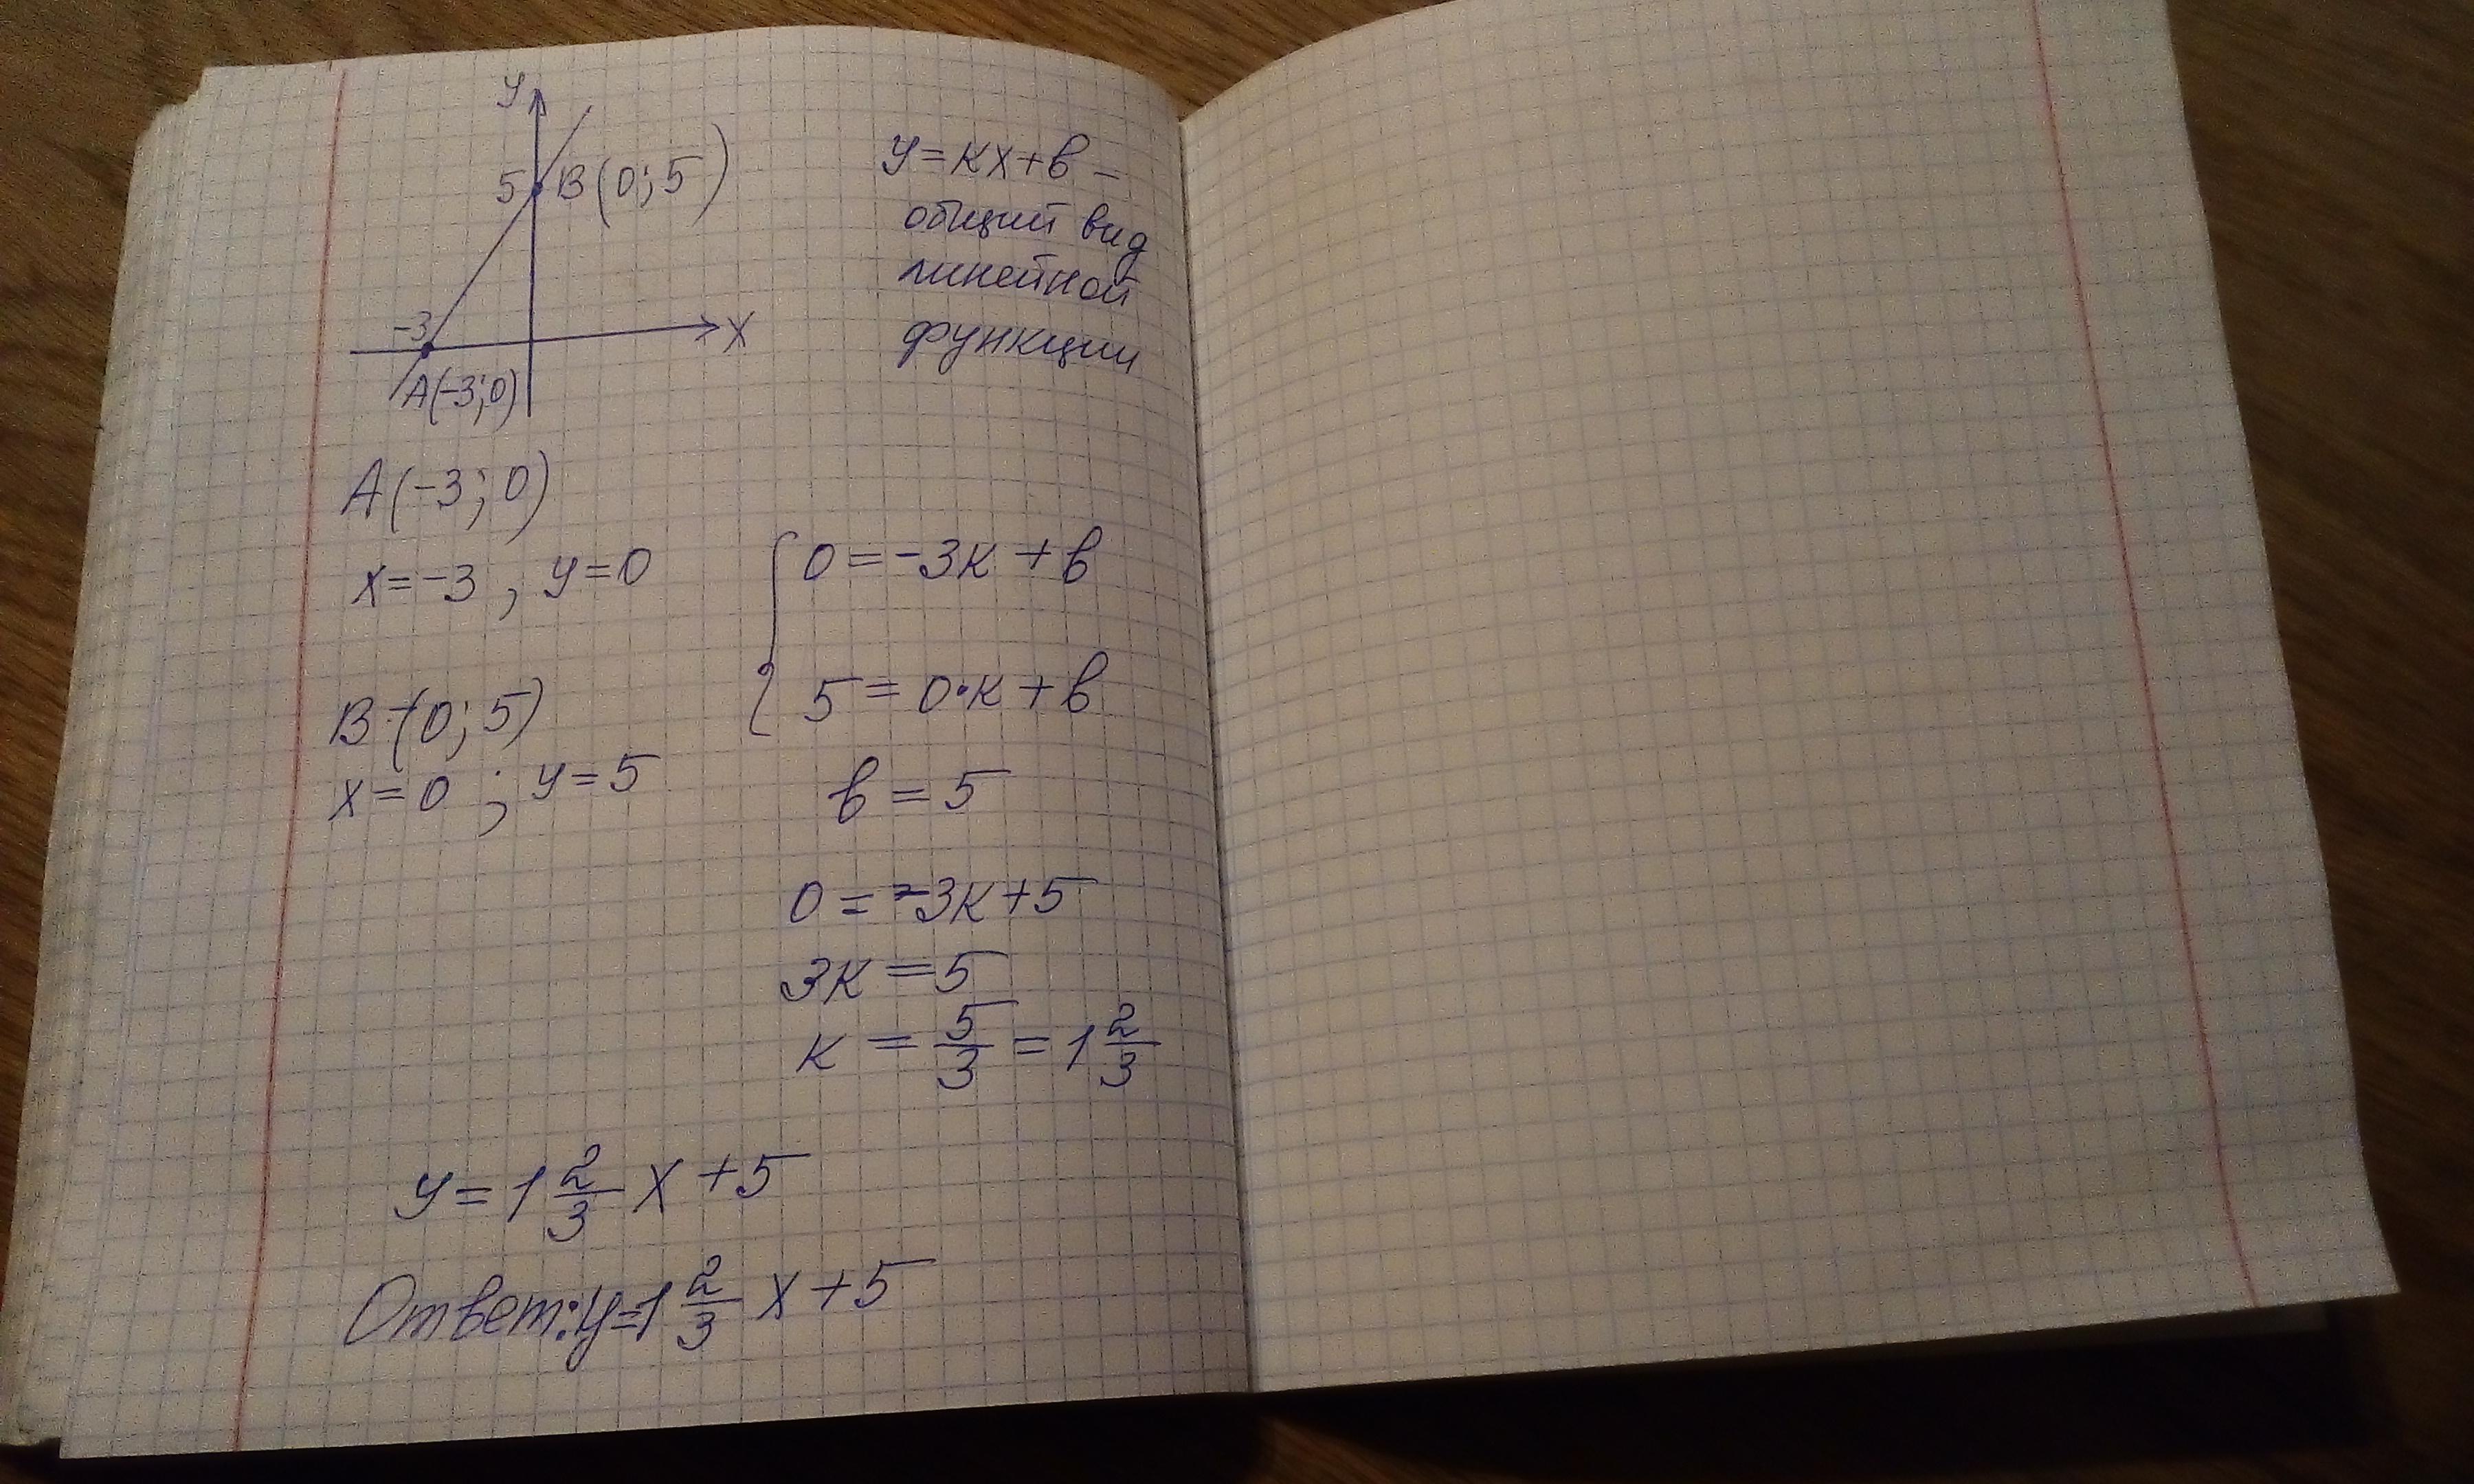 y
5 B(0;5)
-3
x
A(-3;0)
y=kx+b –
общий вид
линейной
функции
A(-3;0)
x=-3, y=0
B(0;5)
x=0; y=5
{0=-3k+b
5=0·k+b
b=5
0=-3k+5
3k=5
k=5/3=1 2/3
y=1 2/3 x+5
Ответ: y=1 2/3 x+5